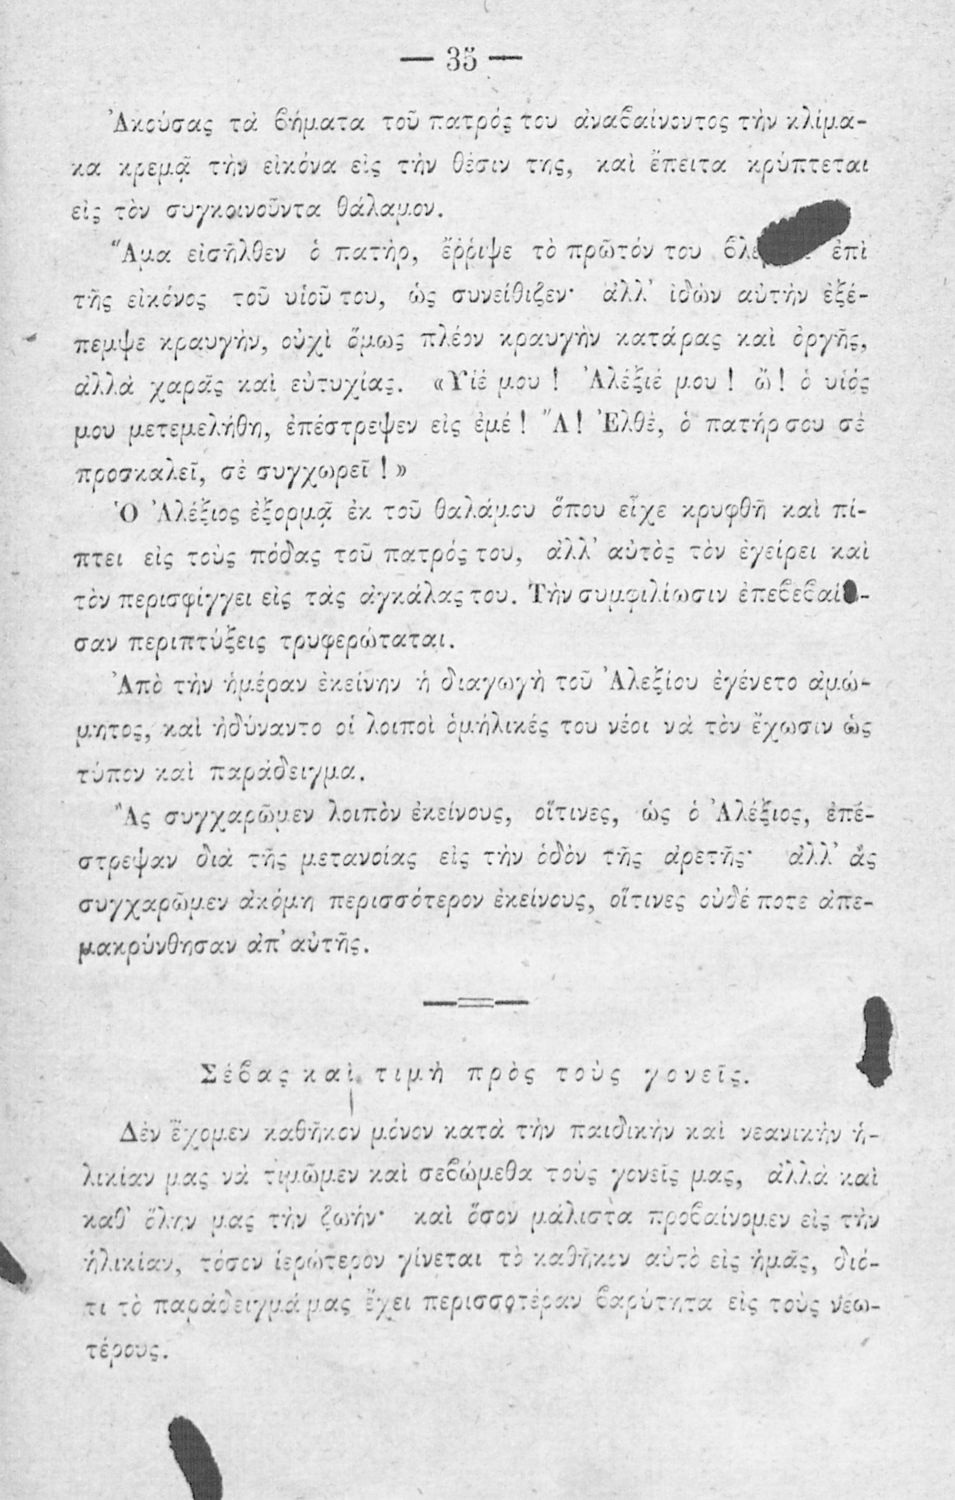 — 35 —
Ἀκούσας τὰ βήματα τοῦ πατρός του ἀναβαίνοντος τὴν κλίμα-
κα κρεμᾷ τὴν εἰκόνα εἰς τὴν θέσιν της, καὶ ἔπειτα κρύπτεται
εἰς τὸν συγκοινοῦντα θάλαμον.
Ἅμα εἰσῆλθεν ὁ πατὴρ, ἔρριψε τὸ πρῶτόν του ἐπὶ
τῆς εἰκόνος τοῦ υἱοῦ του, ὡς συνείθιζεν· ἀλλ' ἰδὼν αὐτὴν ἐξέ-
πεμψε κραυγὴν, οὐχὶ ὅμως πλέον κραυγὴν κατάρας καὶ ὀργῆς,
ἀλλὰ χαρᾶς καὶ εὐτυχίας. «Υἱέ μου! Ἀλέξιέ μου! ὤ! ὁ υἱός
μου μετεμελήθη, ἐπέστρεψεν εἰς ἐμέ! Ἄ! Ἐλθὲ, ὁ πατήρ σου σὲ
προσκαλεῖ, σὲ συγχωρεῖ!»
Ὁ Ἀλέξιος ἐξορμᾷ ἐκ τοῦ θαλάμου ὅπου εἶχε κρυφθῆ καὶ πί-
πτει εἰς τοὺς πόδας τοῦ πατρός του, ἀλλ' αὐτὸς τὸν ἐγείρει καὶ
τὸν περισφίγγει εἰς τὰς ἀγκάλας του. Τὴν συμφιλίωσιν ἐπεβεβαίω-
σαν περιπτύξεις τρυφερώταται.
Ἀπὸ τὴν ἡμέραν ἐκείνην ἡ διαγωγὴ τοῦ Ἀλεξίου ἐγένετο ἀμώ-
μητος, καὶ ἠδύναντο οἱ λοιποὶ ὁμήλικές του νέοι νὰ τὸν ἔχωσιν ὡς
τύπον καὶ παράδειγμα.
Ἂς συγχαρῶμεν λοιπὸν ἐκείνους, οἵτινες, ὡς ὁ Ἀλέξιος, ἐπέ-
στρεψαν διὰ τῆς μετανοίας εἰς τὴν ὁδὸν τῆς ἀρετῆς· ἀλλ' ἂς
συγχαρῶμεν ἀκόμη περισσότερον ἐκείνους, οἵτινες οὐδέ ποτε ἀπε-
μακρύνθησαν ἀπ' αὐτῆς.
Σέβας καὶ τιμὴ πρὸς τοὺς γονεῖς.
Δὲν ἔχομεν καθῆκον μόνον κατὰ τὴν παιδικὴν καὶ νεανικὴν ἡ-
λικίαν μας νὰ τιμῶμεν καὶ σεβώμεθα τοὺς γονεῖς μας, ἀλλὰ καὶ
καθ' ὅλην μας τὴν ζωήν· καὶ ὅσον μάλιστα προβαίνομεν εἰς τὴν
ἡλικίαν, τόσον ἱερώτερον γίνεται τὸ καθῆκον αὐτὸ εἰς ἡμᾶς, διό-
τι τὸ παράδειγμά μας ἔχει περισσοτέραν βαρύτητα εἰς τοὺς νεω-
τέρους.